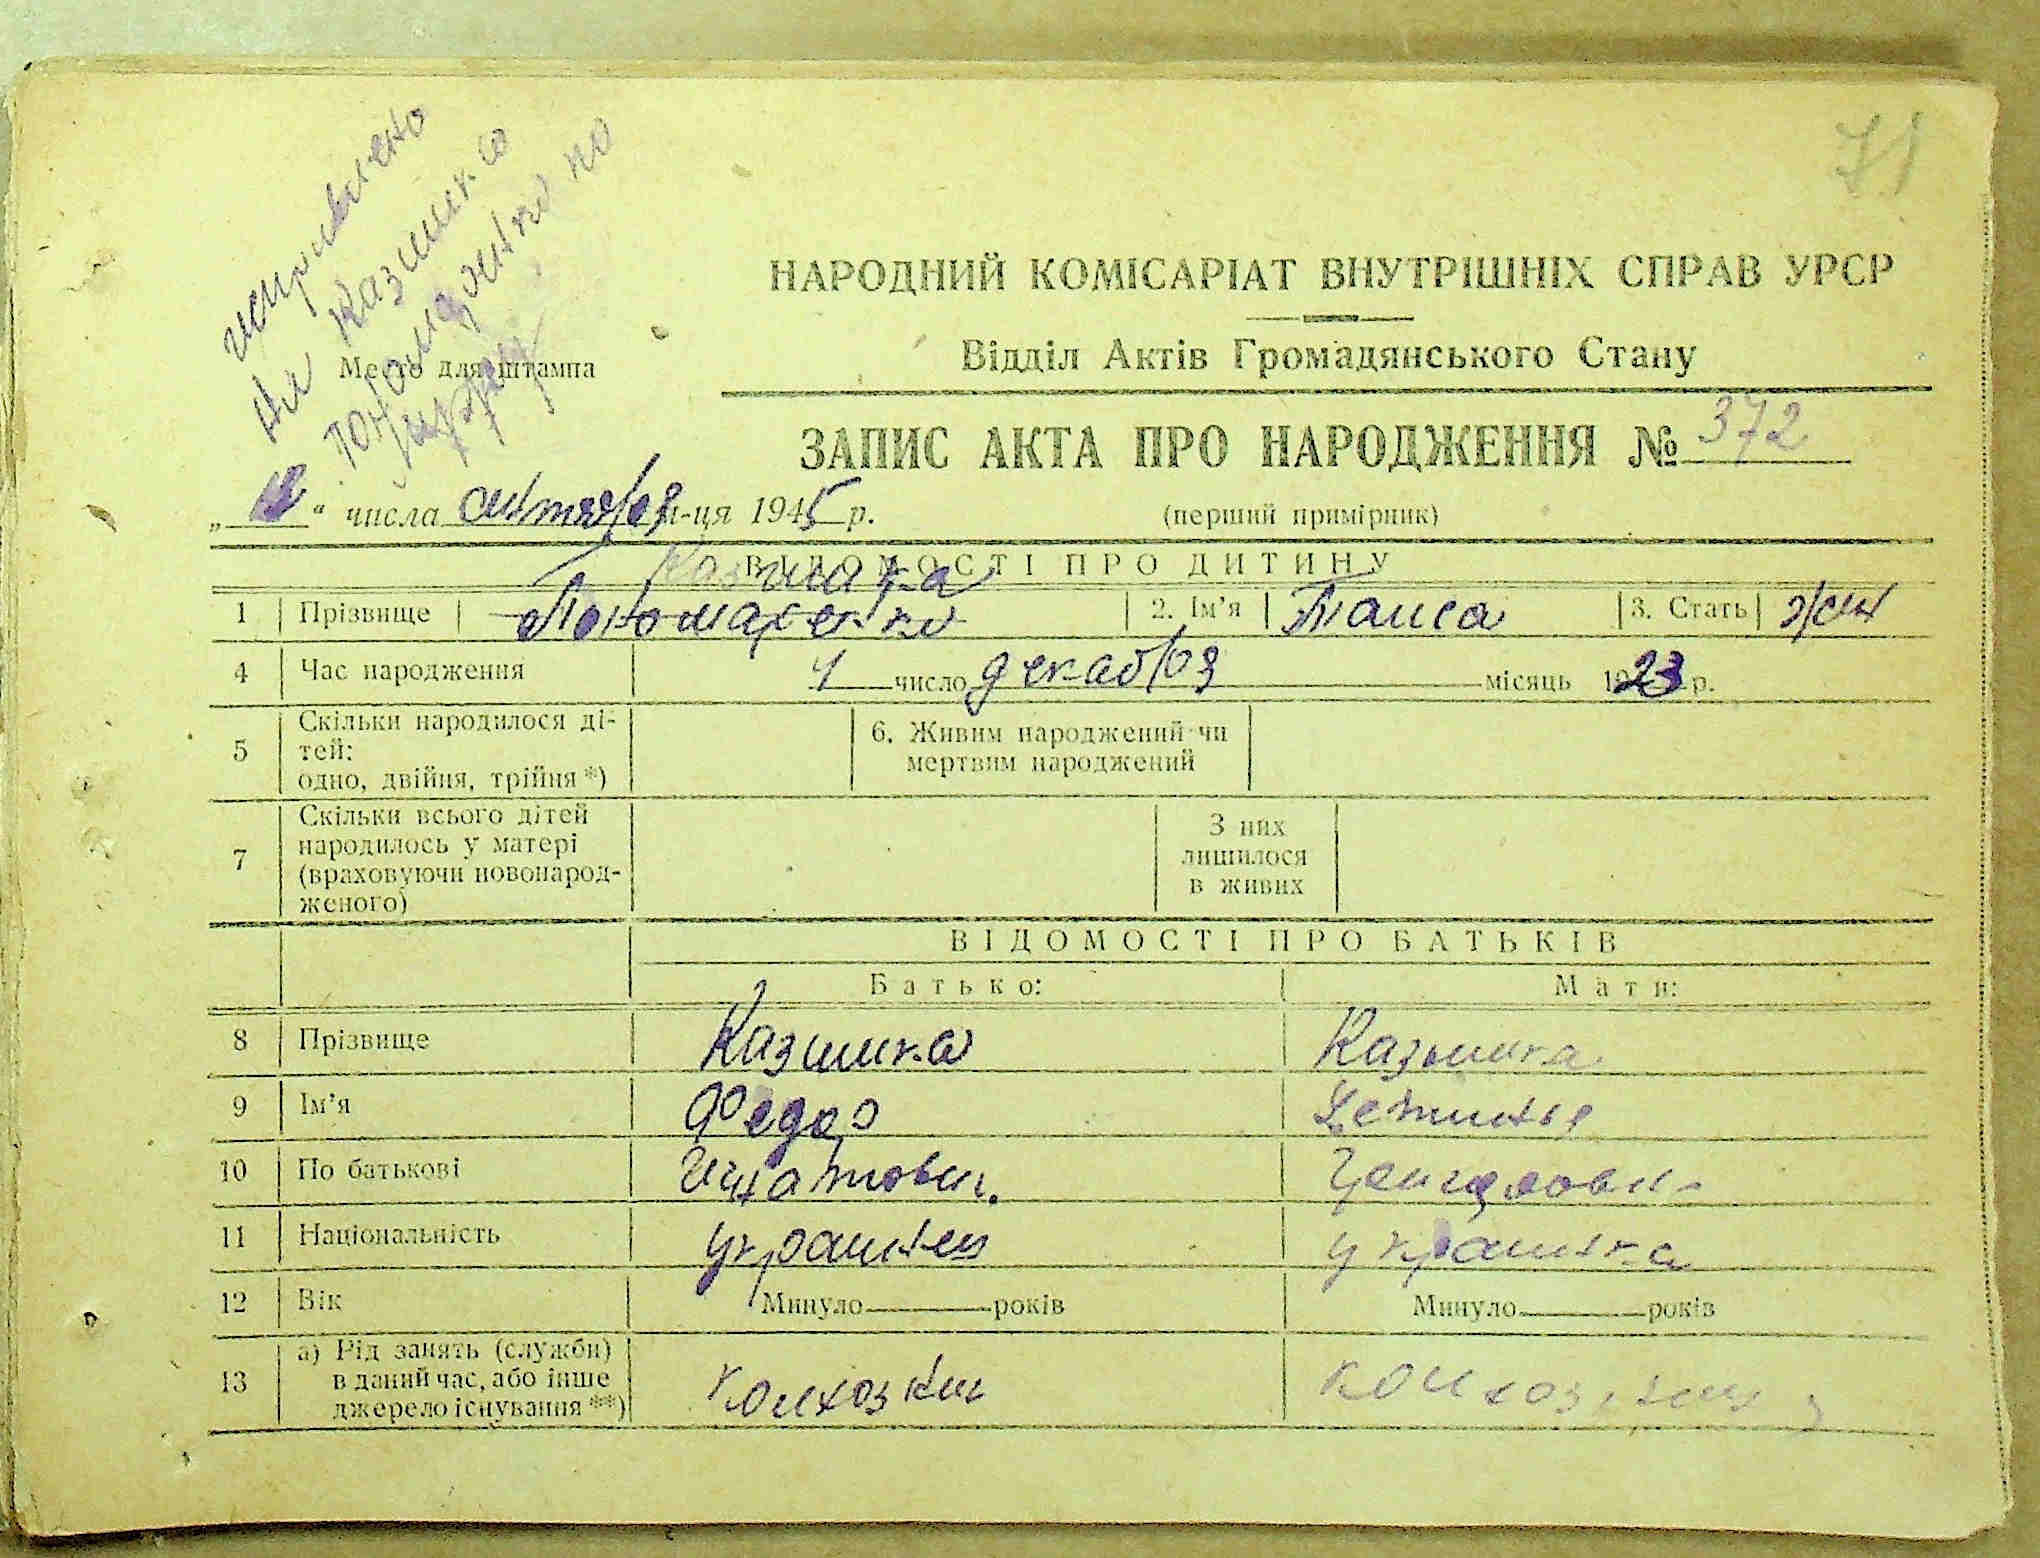 71
исправлено
на Казишка
НАРОДНИЙ КОМІСАРІАТ ВНУТРІШНІХ СПРАВ УРСР
Відділ Актів Громадянського Стану
Место для штампа
ЗАПИС АКТА ПРО НАРОДЖЕННЯ № 372
„ “ числа октября м-ця 1945 р. (перший примірник)
ВІДОМОСТІ ПРО ДИТИНУ
Казишка
1 Прізвище Пономаренко 2. Ім’я Таиса 3. Стать жен
4 Час народження 4 число декабря місяць 1923 р.
5 Скільки народилося ді-
тей:
одно, двійня, трійня *)
6. Живим народжений чи
мертвим народжений
7 Скільки всього дітей
народилось у матері
(враховуючи новонарод-
женого)
З них
лишилося
в живих
ВІДОМОСТІ ПРО БАТЬКІВ
Батько: Мати:
8 Прізвище Казишка Казишка
9 Ім’я Федор
10 По батькові Игнатович.
11 Національність украинец украинка
12 Вік Минуло років Минуло років
13 а) Рід занять (служби)
в даний час, або інше
джерело існування **)
колхозник колхозница